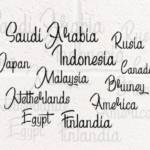 Saudi Arabia
Rusia
Indonesia
Japan
Canada
Malaysia
Bruney
Netherlands
America
Egypt
Finlandia